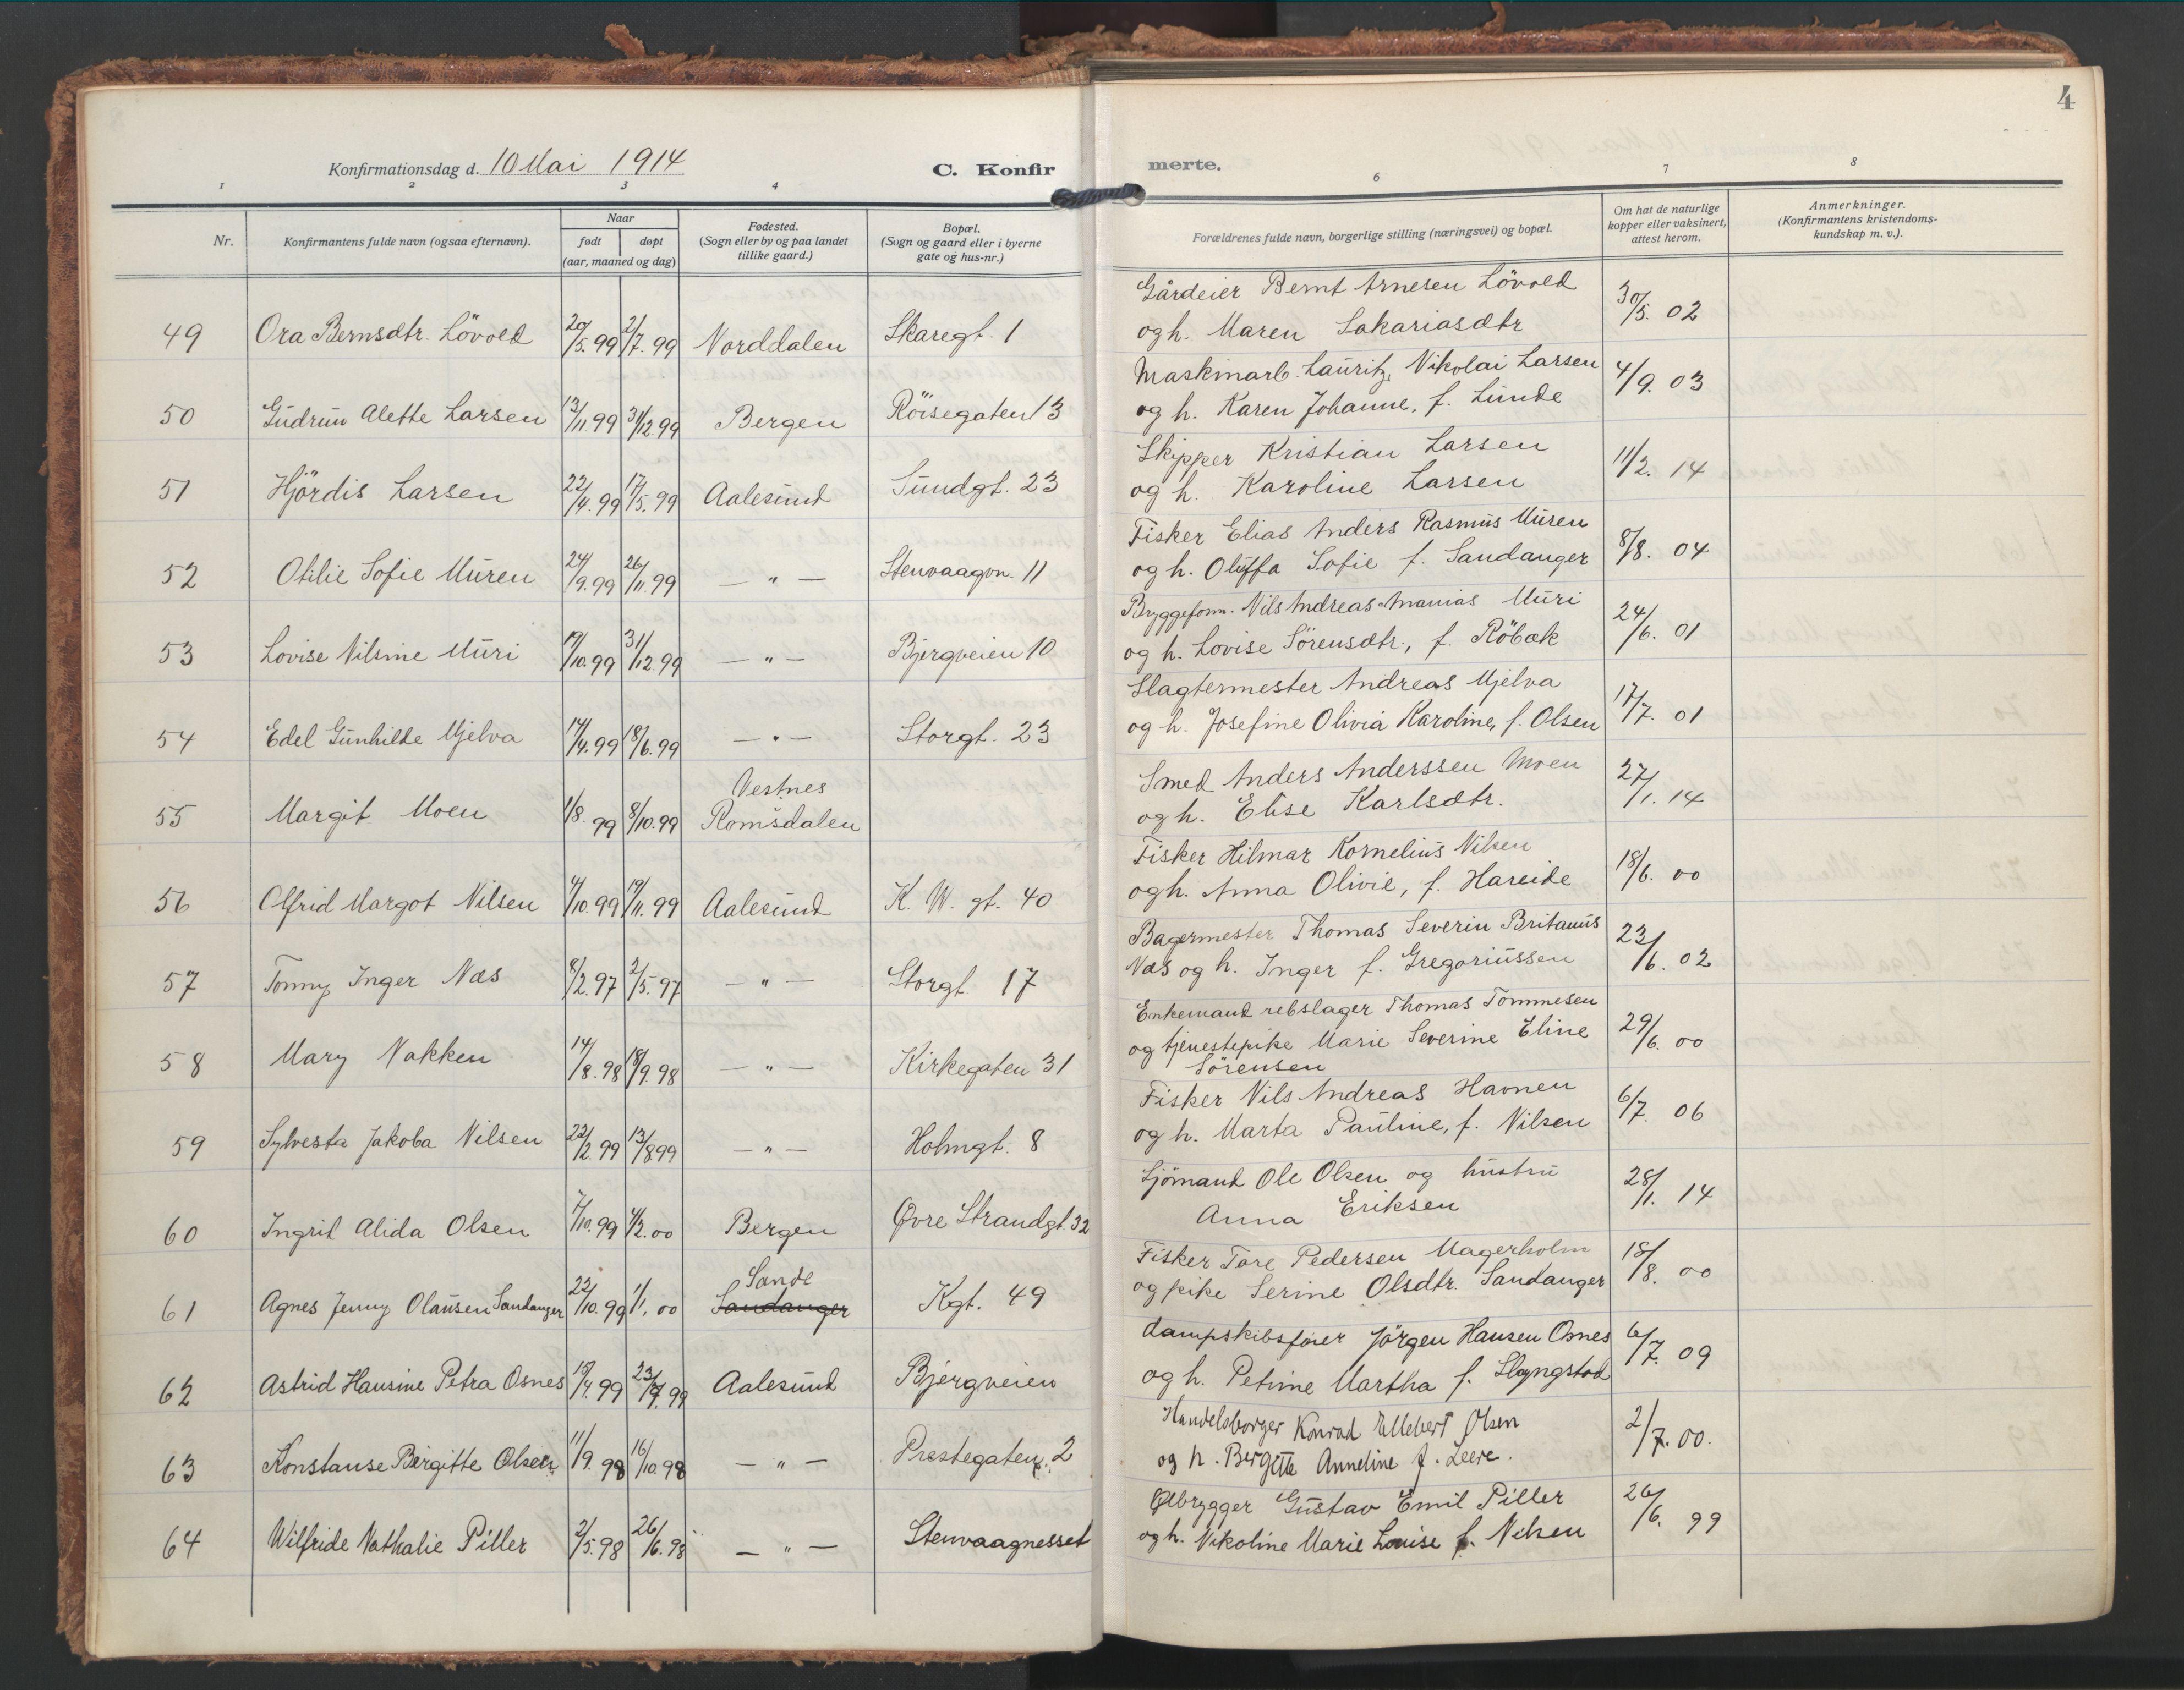 4
Konfirmationsdag d. 10 Mai 1914
C. Konfirmerte.
1 2 3 4 6 7 8
Nr.
Konfirmantens fulde navn (ogsaa efternavn).
Naar
født døpt
(aar, maaned og dag)
Fødested.
(Sogn eller by og paa landet
tillike gaard.)
Bopæl.
(Sogn og gaard eller i byerne
gate og hus-nr.)
Forældrenes fulde navn, borgerlige stilling (næringsvei) og bopæl.
Om hat de naturlige
kopper eller vaksinert,
attest herom.
Anmerkninger.
(Konfirmantens kristendoms-
kundskap m. v.).
Gårdeier Bernt Arnesen Lövold
49 Ora Bernsdtr. Lövold 20/5.99 2/7.99 Norddalen Skaregt. 1 og h. Maren Sakariasdtr 30/5. 02
Maskinarb. Lauritz Nikolai Larsen
50 Gudrun Alette Larsen 13/11.99 31/12.99 Bergen Röisegaten 13 og h. Karen Johanne, f. Lunde 4/9. 03
Skipper Kristian Larsen
51 Hjördis Larsen 22/4.99 17/5.99 Aalesund Sundgt. 23 og h. Karoline Larsen 11/2. 14
Fisker Elias Anders Rasmus Muren
52 Otilie Sofie Muren 24/9.99 26/11.99 — " — Stenvaagvn. 11 og h. Oluffa Sofie f. Sandanger 8/8. 04
Bryggeform. Nils Andreas Ananias Muri
53 Lovise Nilsine Muri 19/10.99 31/12.99 — " — Bjergveien 10 og h. Lovise Sörensdtr., f. Röbæk 24/6. 01
Slagtermester Andreas Mjelva
54 Edel Gunhilde Mjelva 14/4.99 18/6.99 — " — Storgt. 23 og h. Josefine Olivia Karoline, f. Olsen 17/7. 01
Vestnes Smed Anders Anderssen Moen
55 Margit Moen 1/8. 99 8/10.99 Romsdalen og h. Elise Karlsdtr. 27/1. 14
Fisker Hilmar Kornelius Nilsen
56 Olfrid Margot Nilsen 4/10.99 19/11.99 Aalesund K. W. gt. 40 og h. Anna Olivie, f. Hareide 18/6. 00
Bagermester Thomas Severin Britanus
57 Tonny Inger Næs 8/2.97 2/5.97 — " — Storgt. 17 Næs og h. Inger f. Gregoriussen 23/6. 02
Enkemand rebslager Thomas Tommesen
58 Mary Nakken 14/8.98 18/9.98 — " — Kirkegaten 31 og tjenestepike Marie Severine Eline 29/6. 00
Sörensen
Fisker Nils Andreas Havnen
59 Sylvesta Jakoba Nilsen 22/2.99 13/8 99 — " — Holmgt. 8 og h. Marta Pauline, f. Nilsen 6/7. 06
Sjömand Ole Olsen og hustru
60 Ingrid Alida Olsen 7/10.99 4/2.00 Bergen Øvre Strandgt. 32 Anna Eriksen 28/1. 14
Sande Fisker Tore Pedersen Magerholm
61 Agnes Jenny Olausen Sandanger 22/10.99 1/1.00 Sandanger Kgt. 49 og pike Serine Olsdtr. Sandanger 18/8. 00
Dampskibsfører Jörgen Hansen Osnes
62 Astrid Hansine Petra Osnes 15/4.99 23/7.99 Aalesund Bjergveien og h. Petrine Martha f. Slyngstad 6/7. 09
Handelsborger Konrad Ellebert Olsen
63 Konstanse Birgitte Olsen 11/9. 98 16/10.98 — " — Prestegaten 2 og h. Bergitte Anneline f. Leere. 2/7. 00.
Ølbrygger Gustav Emil Piller
64 Wilfride Nathalie Piller 2/5.98 26/6.98 — " — Stenvaagnesset og h. Nikoline Marie Louise f. Nilsen 26/6. 99